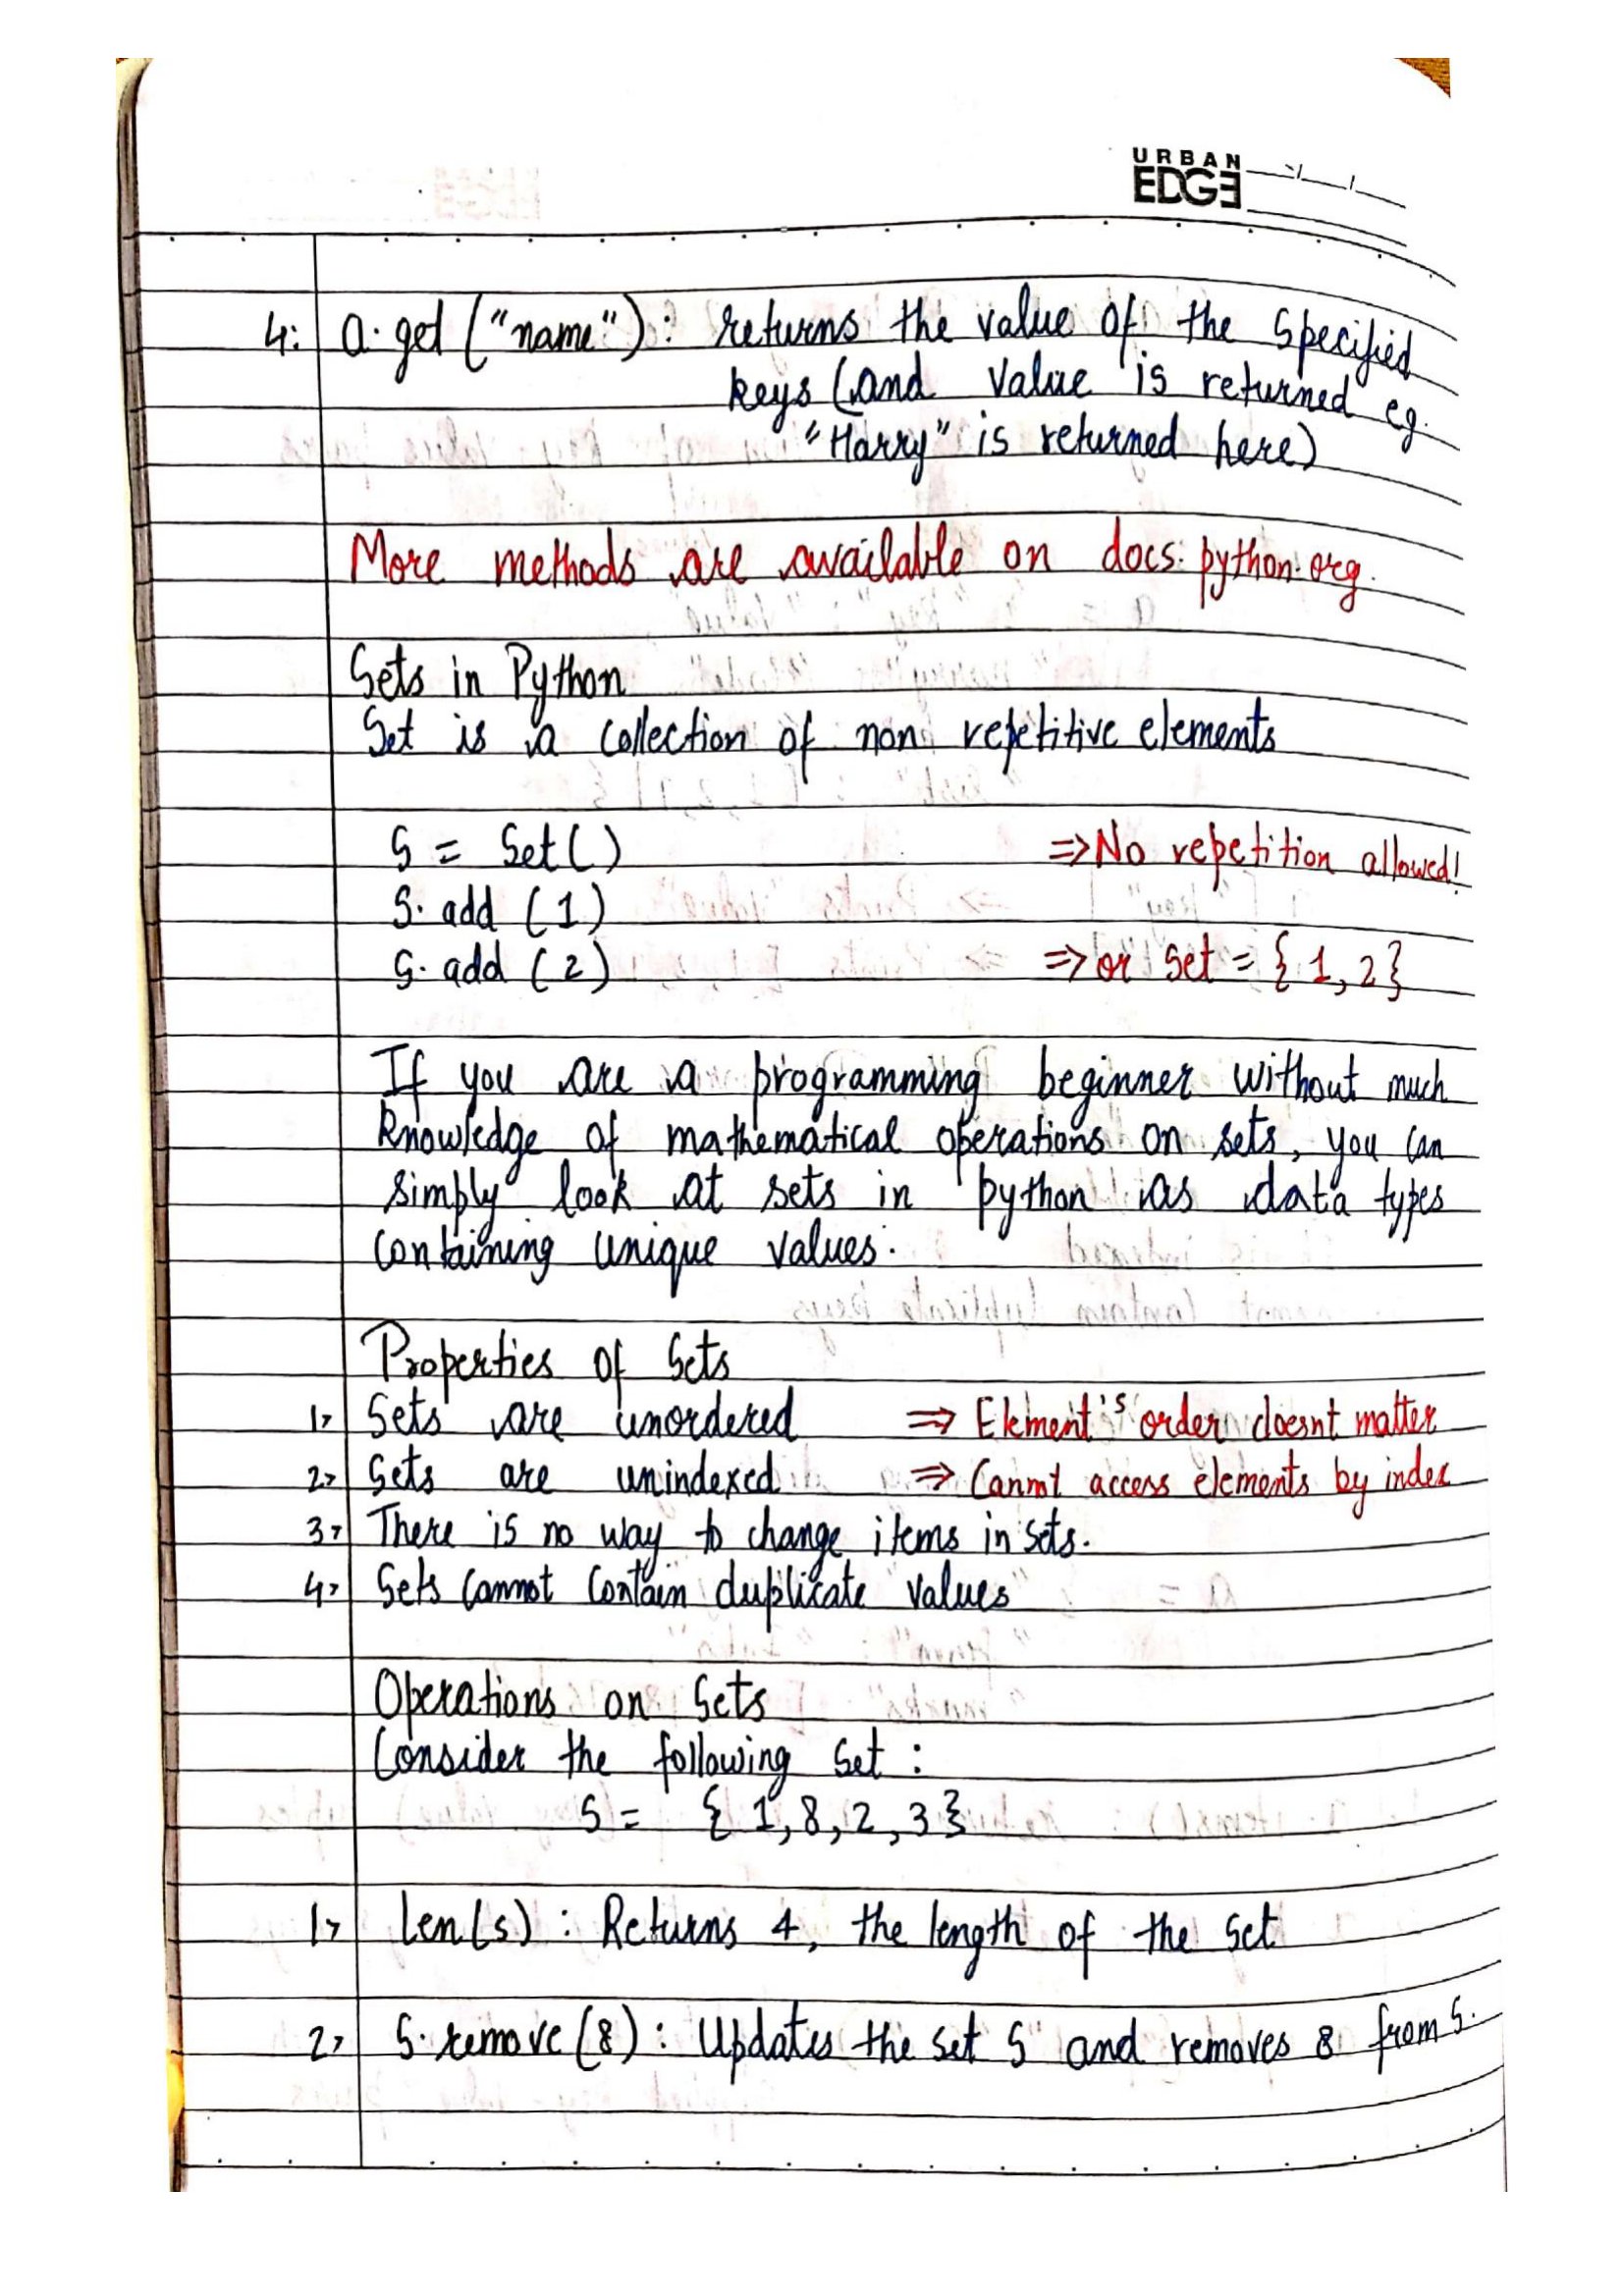 URBAN
EDGE
4: a.get ("name") : returns the value of the specified
keys (and value is returned eg.
"Harry" is returned here)
More methods are available on docs.python.org.
Sets in Python
Set is a collection of non repetitive elements
S = Set() ⇒ No repetition allowed!
S. add (1)
S. add (2) ⇒ or Set = {1,2}
If you are a programming beginner without much
knowledge of mathematical operations on sets, you can
simply look at sets in python as data types
containing unique values.
Properties of Sets
1> Sets are unordered ⇒ Element's order doesnt matter
2> Sets are unindexed ⇒ Cannot access elements by index
3> There is no way to change items in sets.
4> Sets Cannot Contain duplicate values
Operations on Sets
Consider the following Set :
S = {1,8,2,3}
1> len(s) : Returns 4, the length of the Set
2> S.remove(8) : Updates the set S and removes 8 from S.